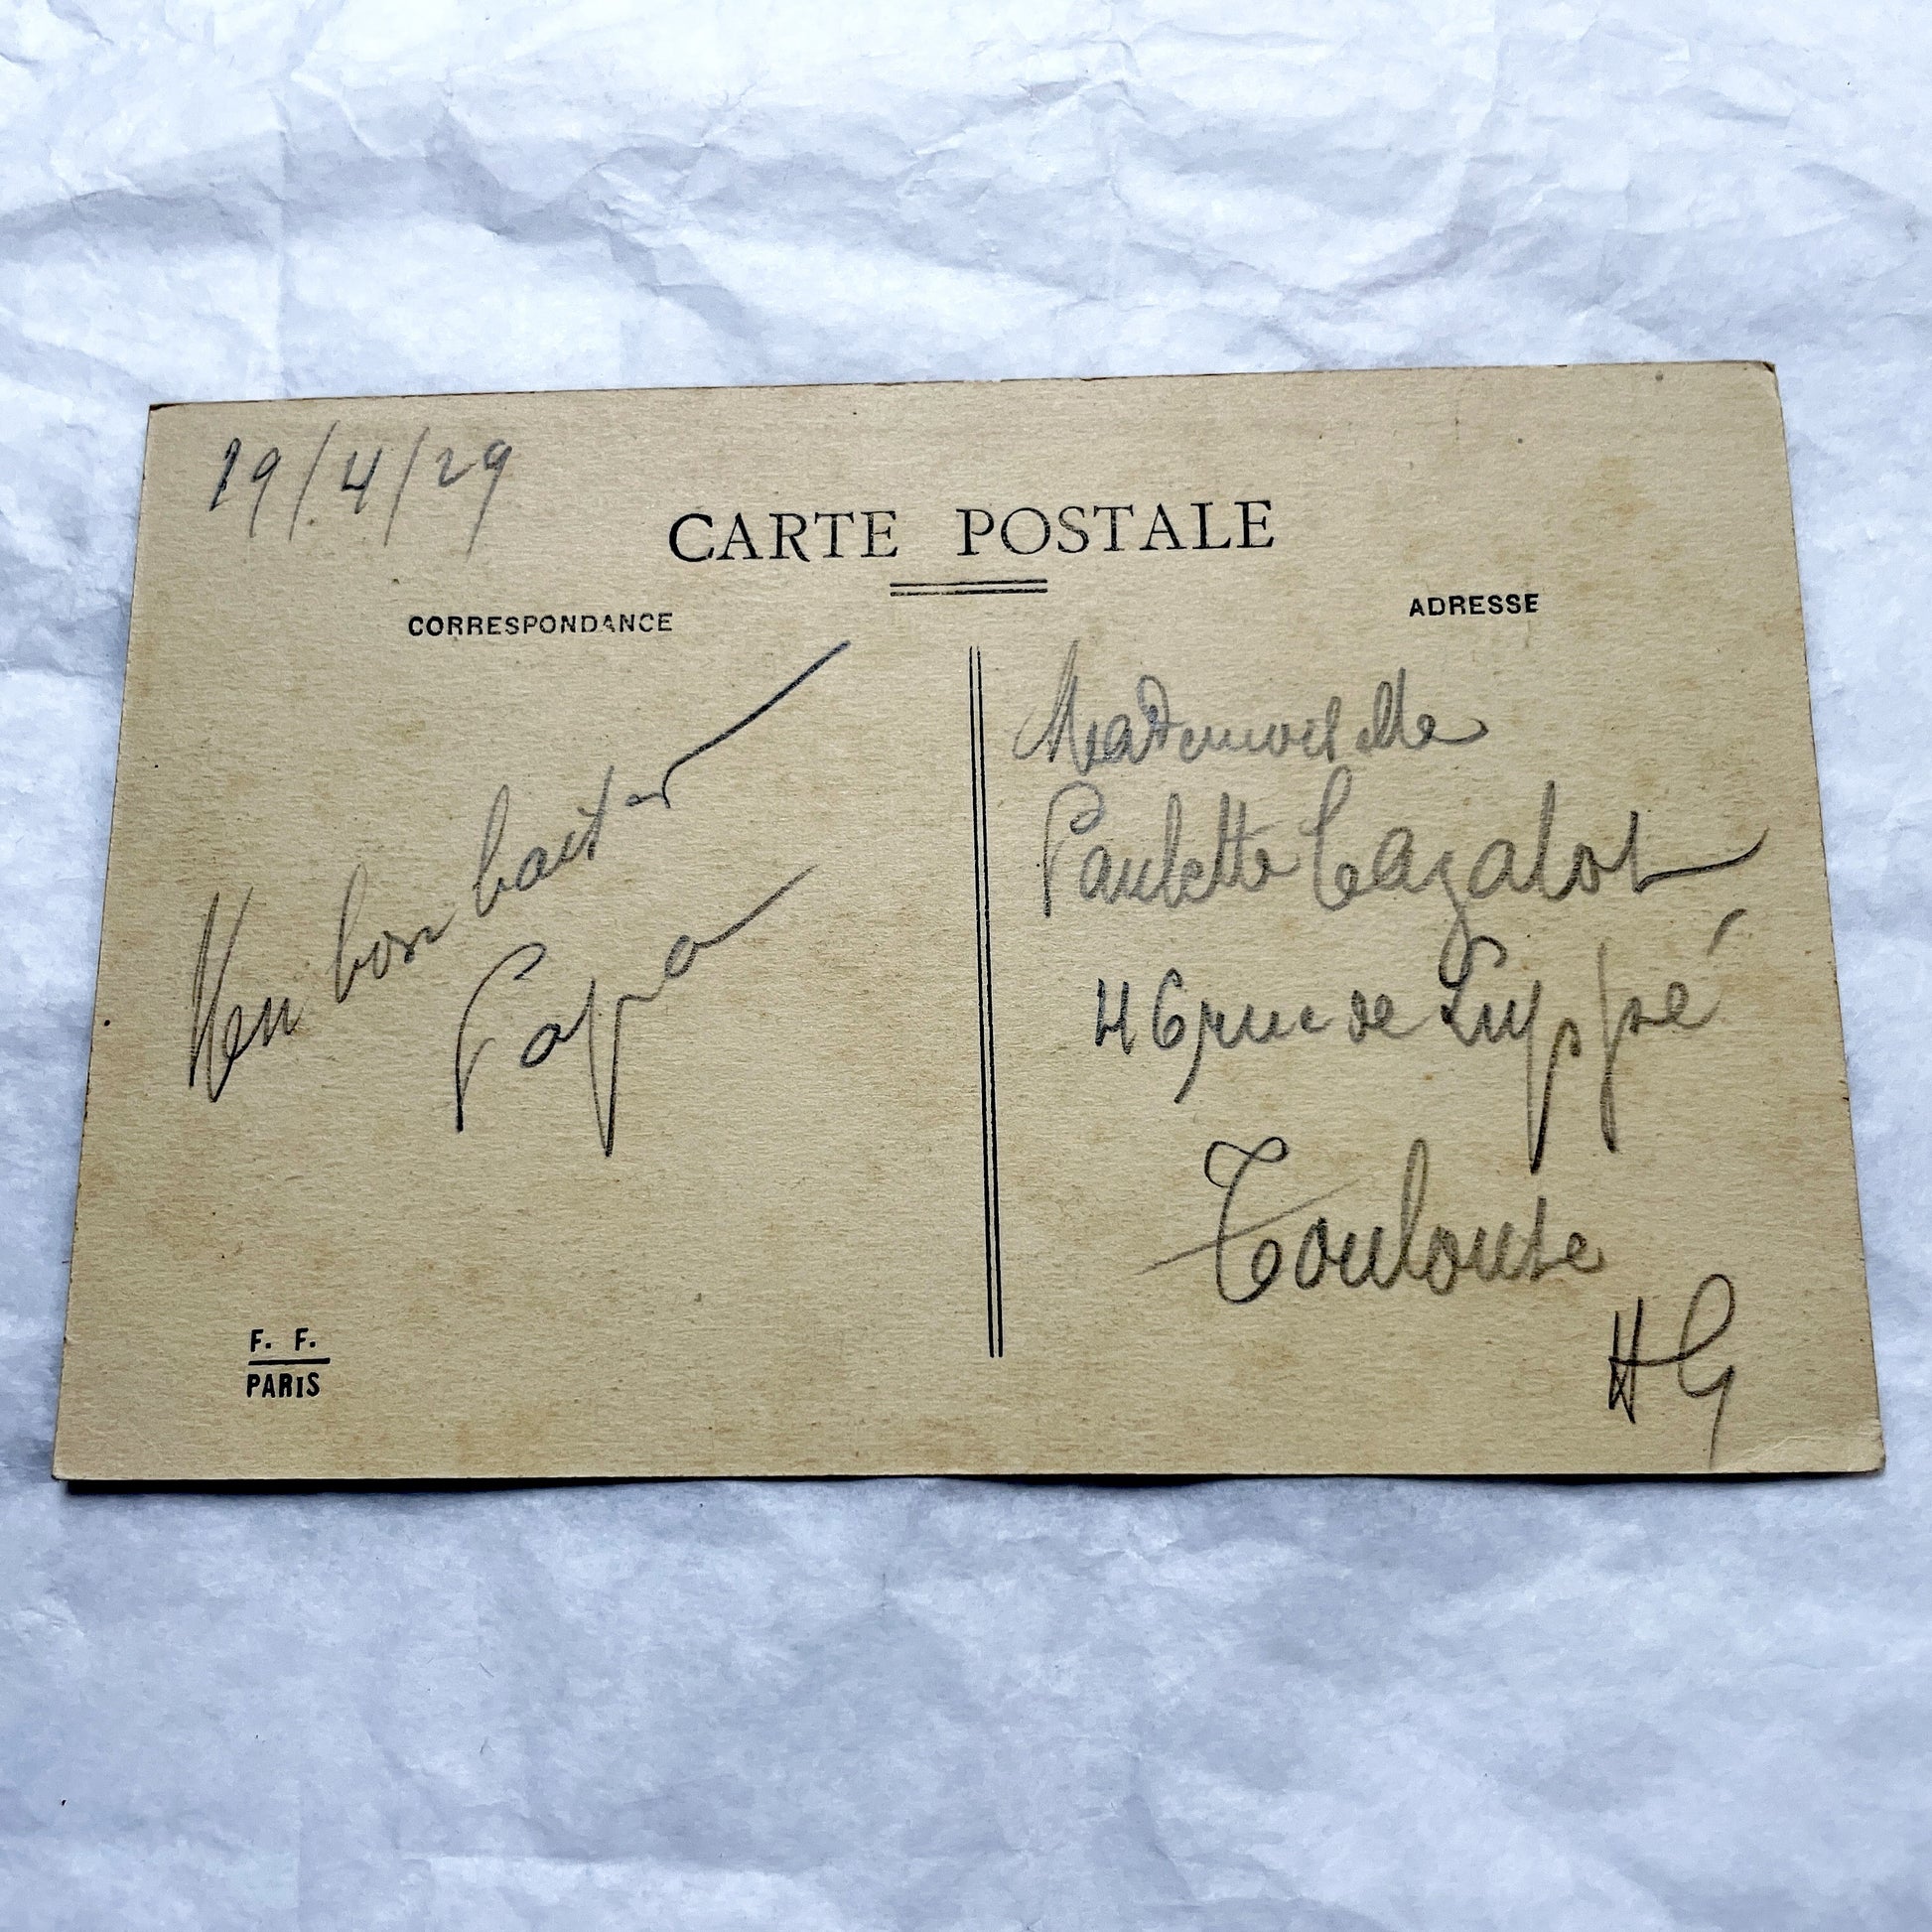 19/4/29
CARTE POSTALE
CORRESPONDANCE
bon
Papa
F. F.
PARIS
ADRESSE
Mademoiselle
Paulette Cazalot
46 rue de
Toulouse
HG